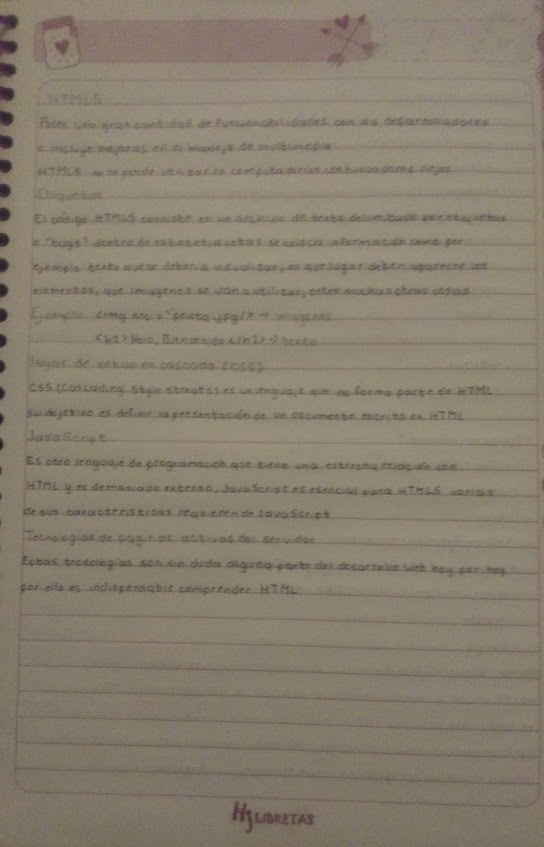 HTML5
Posee una gran cantidad de funcionalidades con los desarrolladores
e incluye mejoras en el manejo de multimedia
HTML5 no se puede utilizar en computadoras con buscadores viejos
Etiquetas
El código HTML5 consiste en un archivo de texto delimitado por etiquetas
o "tags" dentro de estas etiquetas se coloca información como por
ejemplo texto que se deberia visualizar, en que lugar deben aparecer los
elementos, que imagenes se van a utilizar, entre muchas otras cosas
Ejemplo <img src = "prieta.jpg/> → imagenes
<h1>Hola, Bienvenido </h1> → texto
Hojas de estilo en cascada (CSS)
CSS (Cascading Style Streets) es un lenguaje que no forma parte de HTML
su objetivo es definir la presentación de un documento escrito en HTML
JavaScript
Es otro lenguaje de programación que tiene una estrecha relación con
HTML y es demasiado extenso, JavaScript es esencial para HTML5 varias
de sus caracteristicas requieren de JavaScript
Tecnologias de paginas activas del servidor
Estas tecnologías son sin duda alguna parte del desarrollo web hoy por hoy
por ello es indispensable comprender HTML
Hj LIBRETAS